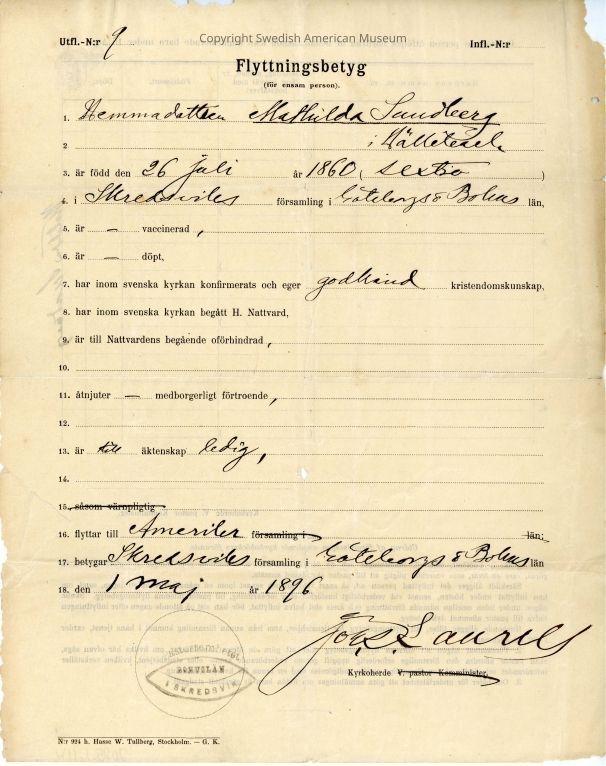 Copyright Swedish American Museum
Utfl.-N:r 9 Infl.-N:r
Flyttningsbetyg
(för ensam person).
1. Hemmadottern Mathilda Sundberg
2. i
3. är född den 26 Juli år 1860 ( sextio )
4. i Skredsviks församling i Göteborgs & Bohus län,
5. är — vaccinerad,
6. är — döpt,
7. har inom svenska kyrkan konfirmerats och eger godkänd kristendomskunskap,
8. har inom svenska kyrkan begått H. Nattvard,
9. är till Nattvardens begående oförhindrad,
10.
11. åtnjuter — medborgerligt förtroende,
12.
13. är till äktenskap ledig,
14.
15. såsom värnpligtig
16. flyttar till Amerika församling i län;
17. betygar Skredsviks församling i Göteborgs & Bohus län
18. den 1 maj år 1896
Laurell
Kyrkoherde V. pastor Komminister,
BOHUSLÄN
I SKREDSVIK
N:r 924 h. Hasse W. Tullberg, Stockholm. — G. K.